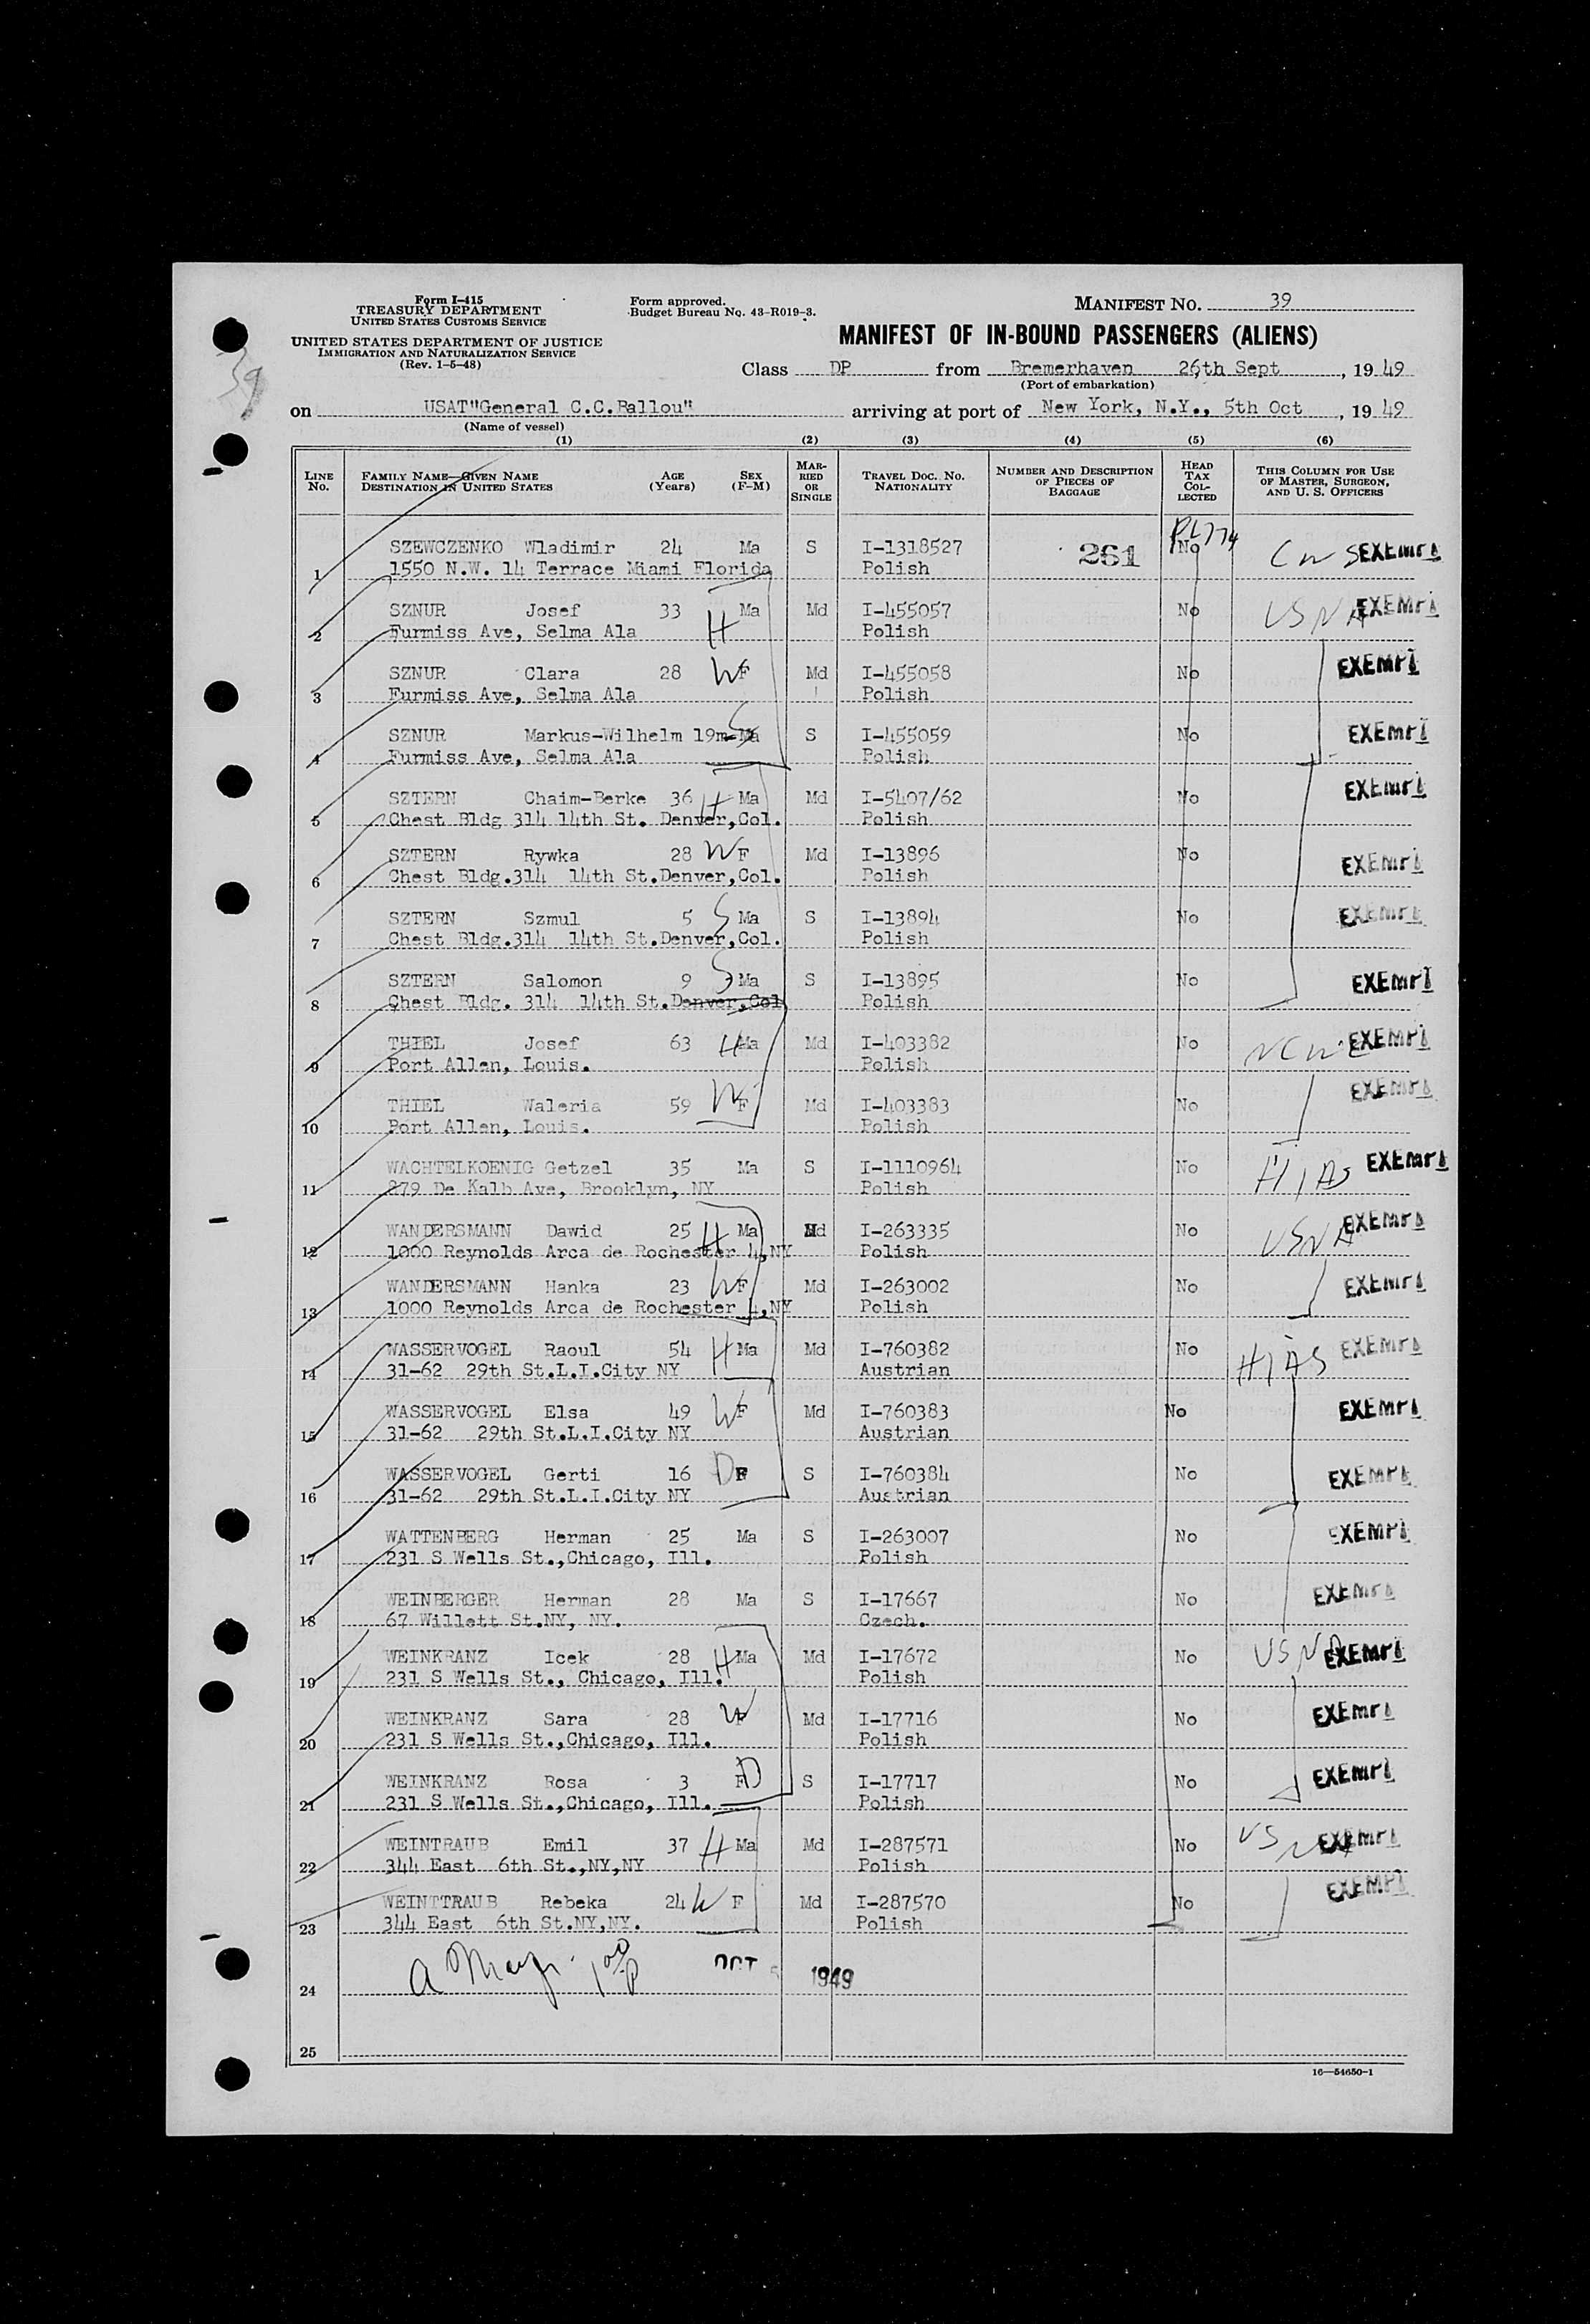 Form I-415
TREASURY DEPARTMENT
UNITED STATES CUSTOMS SERVICE
UNITED STATES DEPARTMENT OF JUSTICE
IMMIGRATION AND NATURALIZATION SERVICE
(Rev. 1-5-48)
Form approved.
Budget Bureau No. 43-R019-3.
MANIFEST NO. 39
MANIFEST OF IN-BOUND PASSENGERS (ALIENS)
39
Class DP from Bremerhaven 26th Sept, 19 49
(Port of embarkation)
on USAT"General C.C.Ballou" arriving at port of New York, N.Y., 5th Oct, 19 49
(Name of vessel)
(1) (2) (3) (4) (5) (6)
LINE No. FAMILY NAME—GIVEN NAME DESTINATION IN UNITED STATES AGE (Years) SEX (F-M) MARRIED OR SINGLE TRAVEL DOC. NO. NATIONALITY NUMBER AND DESCRIPTION OF PIECES OF BAGGAGE HEAD TAX COLLECTED THIS COLUMN FOR USE OF MASTER, SURGEON, AND U. S. OFFICERS
SZEWCZENKO Wladimir 24 Ma S I-1318527 261 PL774 No CWS EXEMPT
1 1550 N.W. 14 Terrace Miami Florida Polish
SZNUR Josef 33 H Ma Md I-455057 No USNA EXEMPT
2 Furmiss Ave, Selma Ala Polish
SZNUR Clara 28 W F Md I-455058 No EXEMPT
3 Furmiss Ave, Selma Ala Polish
SZNUR Markus-Wilhelm 19m S Ma S I-455059 No EXEMPT
4 Furmiss Ave, Selma Ala Polish
SZTERN Chaim-Berke 36 H Ma Md I-5407/62 No EXEMPT
5 Chest Bldg 314 14th St. Denver,Col. Polish
SZTERN Rywka 28 W F Md I-13896 No EXEMPT
6 Chest Bldg.314 14th St.Denver,Col. Polish
SZTERN Szmul 5 S Ma S I-13894 No EXEMPT
7 Chest Bldg.314 14th St.Denver,Col. Polish
SZTERN Salomon 9 S Ma S I-13895 No EXEMPT
8 Chest Bldg. 314 14th St.Denver,Col Polish
THIEL Josef 63 H Ma Md I-403382 No NCWC EXEMPT
9 Port Allen, Louis. Polish
THIEL Waleria 59 W F Md I-403383 No EXEMPT
10 Port Allen, Louis. Polish
WACHTELKOENIG Getzel 35 Ma S I-1110964 No HIAS EXEMPT
11 879 De Kalb Ave, Brooklyn, NY Polish
WANDERSMANN Dawid 25 H Ma Md I-263335 No USNA EXEMPT
12 1000 Reynolds Arca de Rochester 4,NY Polish
WANDERSMANN Hanka 23 W F Md I-263002 No EXEMPT
13 1000 Reynolds Arca de Rochester 4,NY Polish
WASSERVOGEL Raoul 54 H Ma Md I-760382 No HIAS EXEMPT
14 31-62 29th St.L.I.City NY Austrian
WASSERVOGEL Elsa 49 W F Md I-760383 No EXEMPT
15 31-62 29th St.L.I.City NY Austrian
WASSERVOGEL Gerti 16 D F S I-760384 No EXEMPT
16 31-62 29th St.L.I.City NY Austrian
WATTENBERG Herman 25 Ma S I-263007 No EXEMPT
17 231 S Wells St.,Chicago, Ill. Polish
WEINBERGER Herman 28 Ma S I-17667 No EXEMPT
18 67 Willett St.NY, NY. Czech.
WEINKRANZ Icek 28 H Ma Md I-17672 No USNA EXEMPT
19 231 S Wells St., Chicago, Ill. Polish
WEINKRANZ Sara 28 W F Md I-17716 No EXEMPT
20 231 S Wells St.,Chicago, Ill. Polish
WEINKRANZ Rosa 3 F D S I-17717 No EXEMPT
21 231 S Wells St.,Chicago, Ill. Polish
WEINTRAUB Emil 37 H Ma Md I-287571 No USNA EXEMPT
22 344 East 6th St.,NY,NY Polish
WEINTTRAUB Rebeka 24 W F Md I-287570 No EXEMPT
23 344 East 6th St.NY,NY. Polish
OCT 5 1949
24
25
16—54650-1